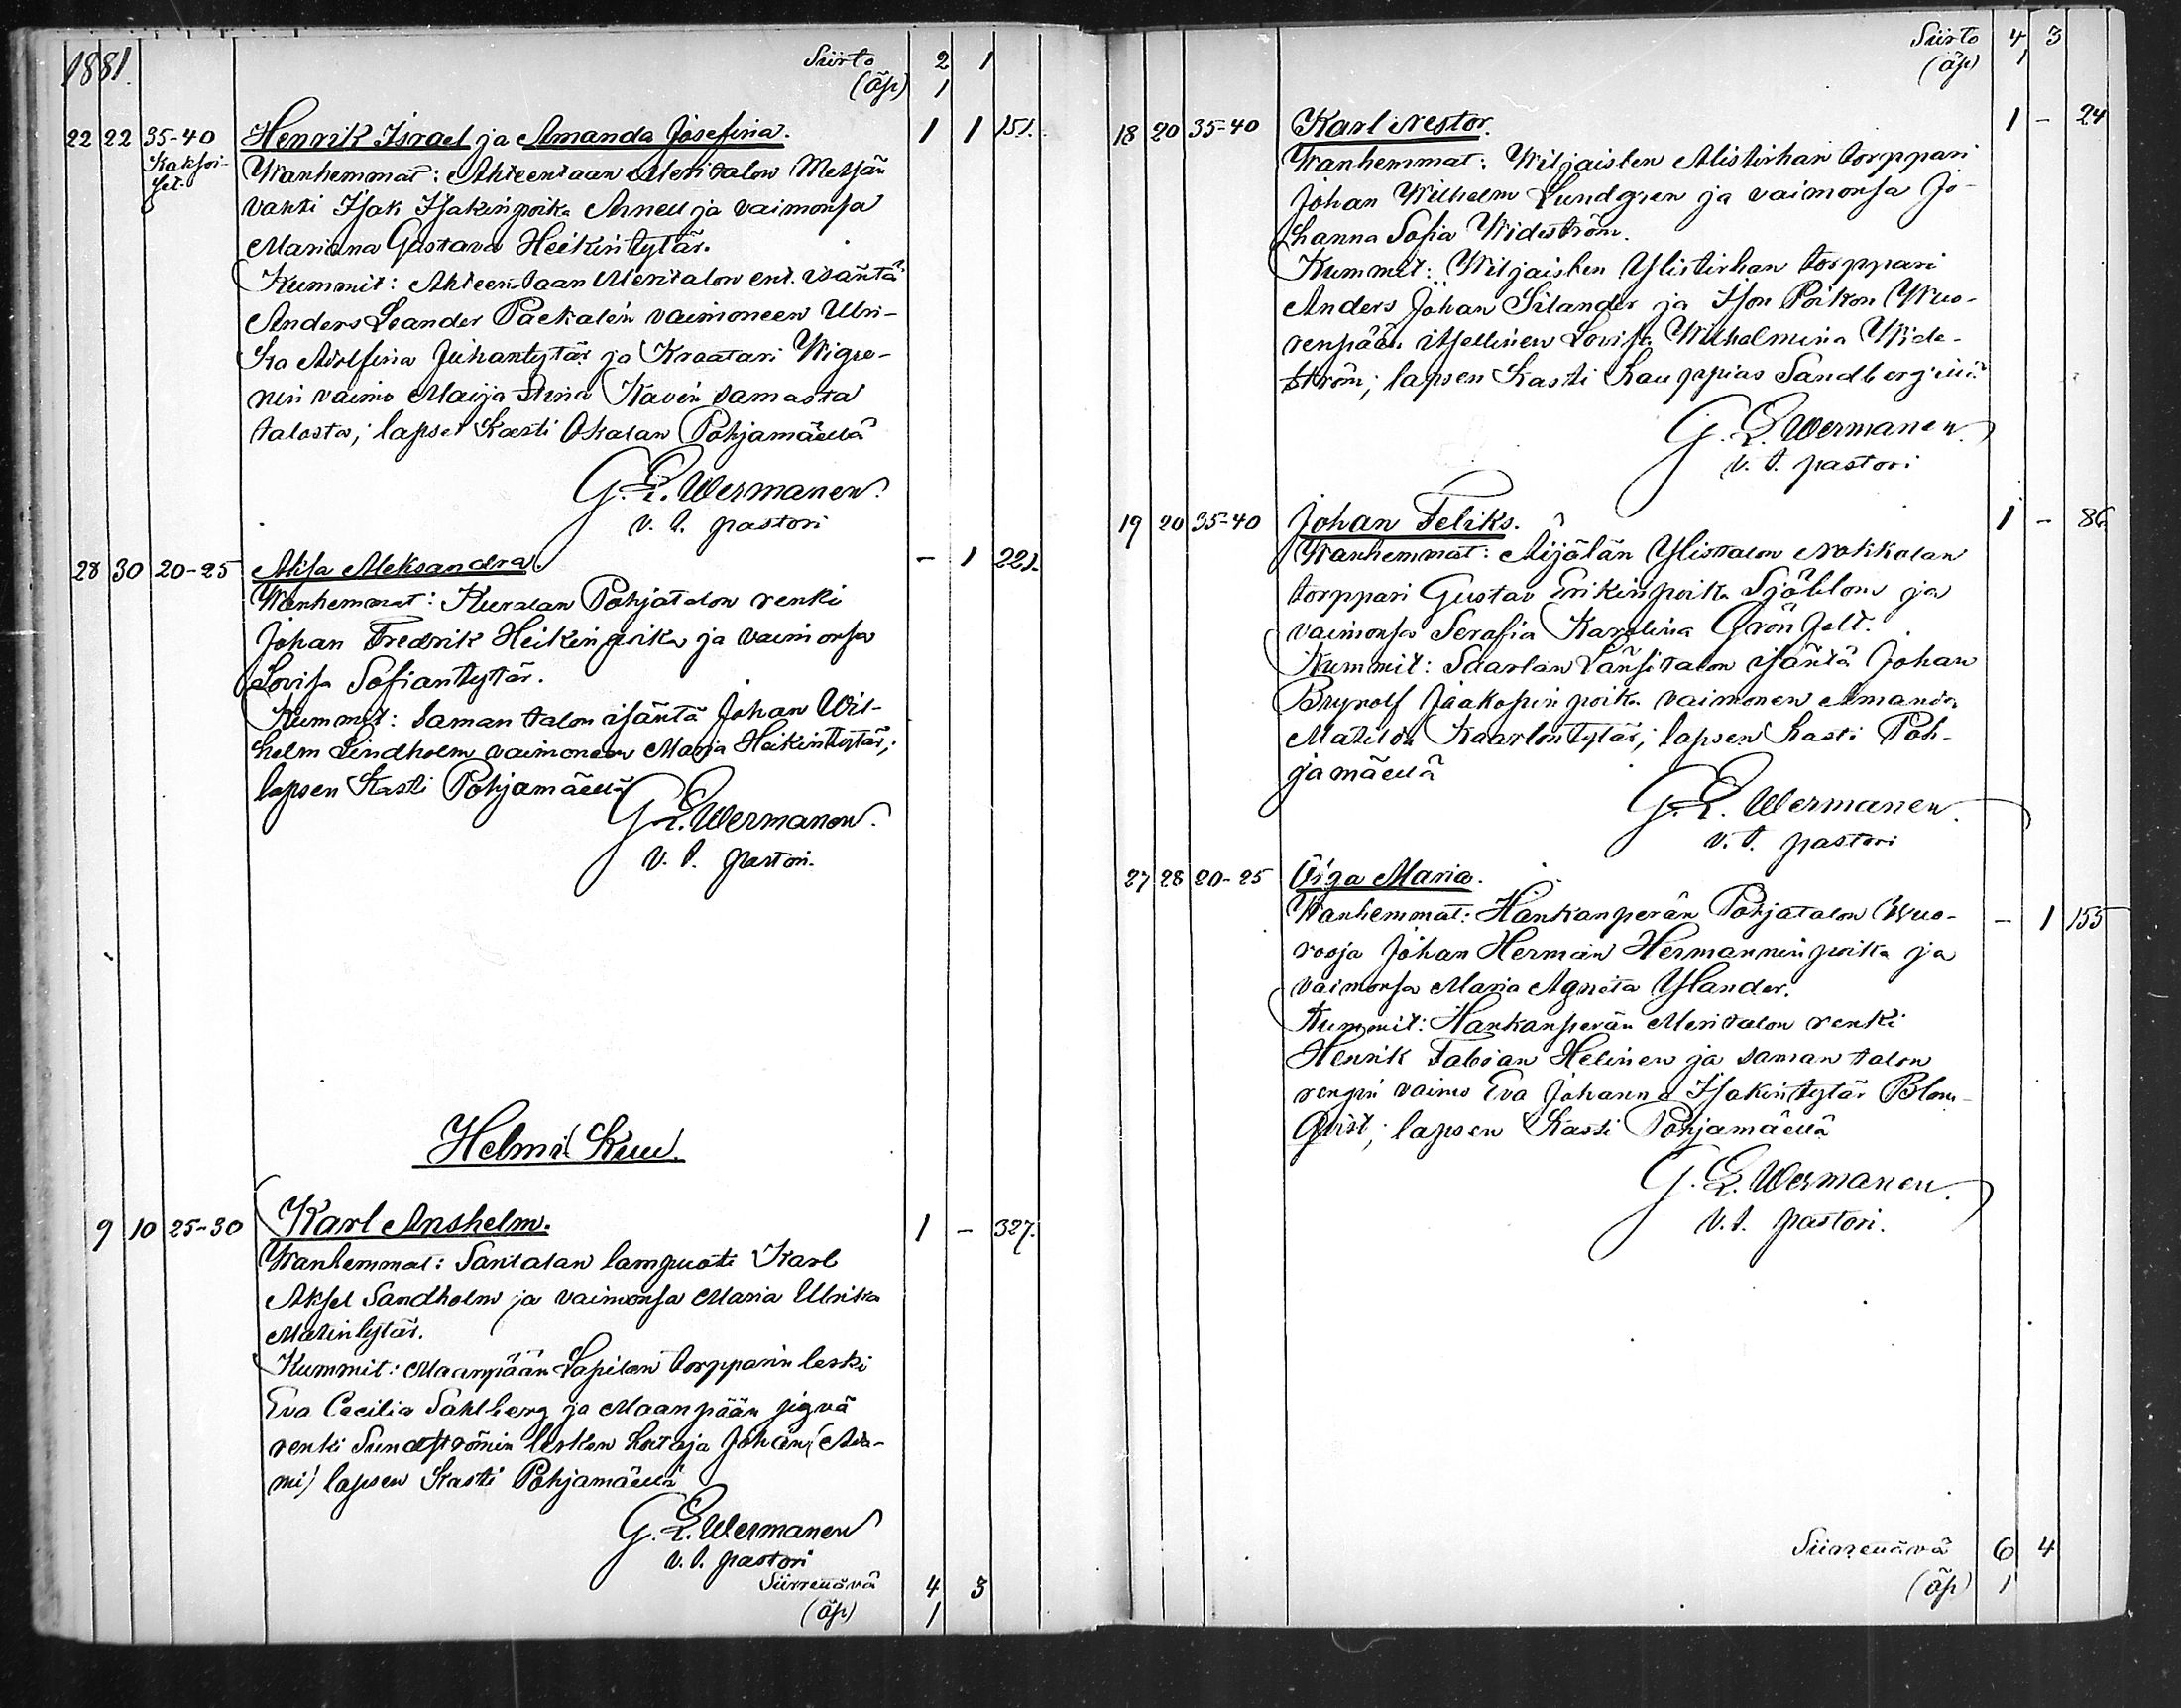 1881. Siirto 2 1
(äp) 1
22 22 35-40 Henrik Israel ja Amanda Josefina. 1 1 151.
Kaksoi- Wanhemmat: Ahteentaan Meritalon Metsän
set. vahti Isak Isakinpoika Arnell ja vaimonsa
Mariana Gustava Heikintytär.
Kummit: Ahteentaan Meritalon ent. isäntä
Anders Leander Packalén vaimoneen Ulri-
ka Adolfina Juhantytär ja Kraatari Wigre-
nin vaimo Maija Stina Kavén samasta
talosta; lapset Kasti Okalan Pohjamäellä
G. E. Wermanen.
v. t. pastori
28 30 20-25 Aksa Aleksandra. - 1 221.
Wanhemmat: Kuralan Pohjatalon renki
Johan Fredrik Heikinpoika ja vaimonsa
Lovisa Sofiantytär.
Kummit: saman talon isäntä Johan Wil-
helm Lindholm vaimoneen Maria Heikintytär;
lapsen Kasti Pohjamäellä
G. E. Wermanen.
v. t. pastori.
Helmi Kuu.
9 10 25-30 Karl Anshelm. 1 - 327.
Wanhemmat: Santalan lampuoti Karl
Aksel Sandholm ja vaimonsa Maria Ulrika
Matintytär.
Kummit: Maanpään Lapilan torpparin leski
Eva Cecilia Sahlberg ja Maanpään
renki Sundströmin lesken hoitaja Johan (Ada-
mi) lapsen Kasti Pohjamäellä
G. E. Wermanen
v. t. pastori
Siirrettävä 4 3
(äp) 1
Siirto 4 3
(äp) 1
18 20 35-40 Karl Nestor. 1 - 24
Wanhemmat: Wiljaisten Alistirhan torppari
Johan Wilhelm Lundgren ja vaimonsa Jo-
hanna Sofia Wideström.
Kummit: Wiljaisten Ylistirhan torppari
Anders Johan Silander ja Ison Poikon Wuo-
renpään itsellinen Lovisa Wilhelmina Wide-
ström; lapsen Kasti Kauppias Sandberg
G. E. Wermanen.
v. t. pastori
19 20 35-40 Johan Feliks. 1 - 86.
Wanhemmat: Äijälän Ylistalon Nokkalan
torppari Gustav Erikinpoika Sjöblom ja
vaimonsa Serafia Karolina Grönfelt.
Kummit: Saarlan Länsitalon isäntä Johan
Brynolf Jaakopinpoika vaimonen Amanda
Matilda Kaarlontytär; lapsen Kasti Poh-
jamäellä
G. E. Wermanen.
v. t. pastori
27 28 20-25 Olga Maria.
Wanhemmat: Hankanperän Pohjatalon Wuo- - 1 155
rooja Johan Herman Hermanninpoika ja
vaimonsa Maria Agneta Ylander.
Kummit: Hankanperän Meritalon renki
Henrik Fabian Helinen ja saman talon
rengin vaimo Eva Johanna Isakintytär Blom-
qvist; lapsen Kasti Pohjamäellä
G. E. Wermanen.
v. t. pastori.
Siirrettävä 6 4
(äp) 1